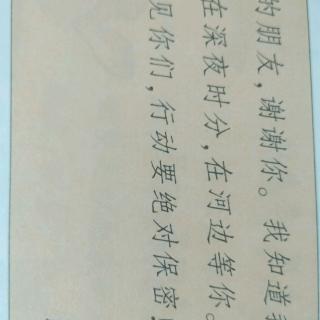 的朋友，谢谢你。我知道我
在深夜时分，在河边等你。
见你们，行动要绝对保密！